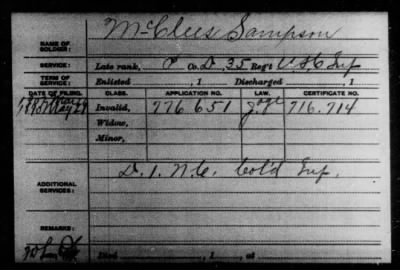 McClees Sampson
NAME OF SOLDIER:
SERVICE: Late rank, P Co. D, 35 Reg't U.S.C. Inf
TERM OF SERVICE: Enlisted , 1 Discharged , 1
DATE OF FILING. CLASS. APPLICATION NO. LAW. CERTIFICATE NO.
Invalid, 776 651 716.714
Widow,
Minor,
ADDITIONAL SERVICES: D. 1. N.C. Col'd Inf.
REMARKS:
Died , 1 , at